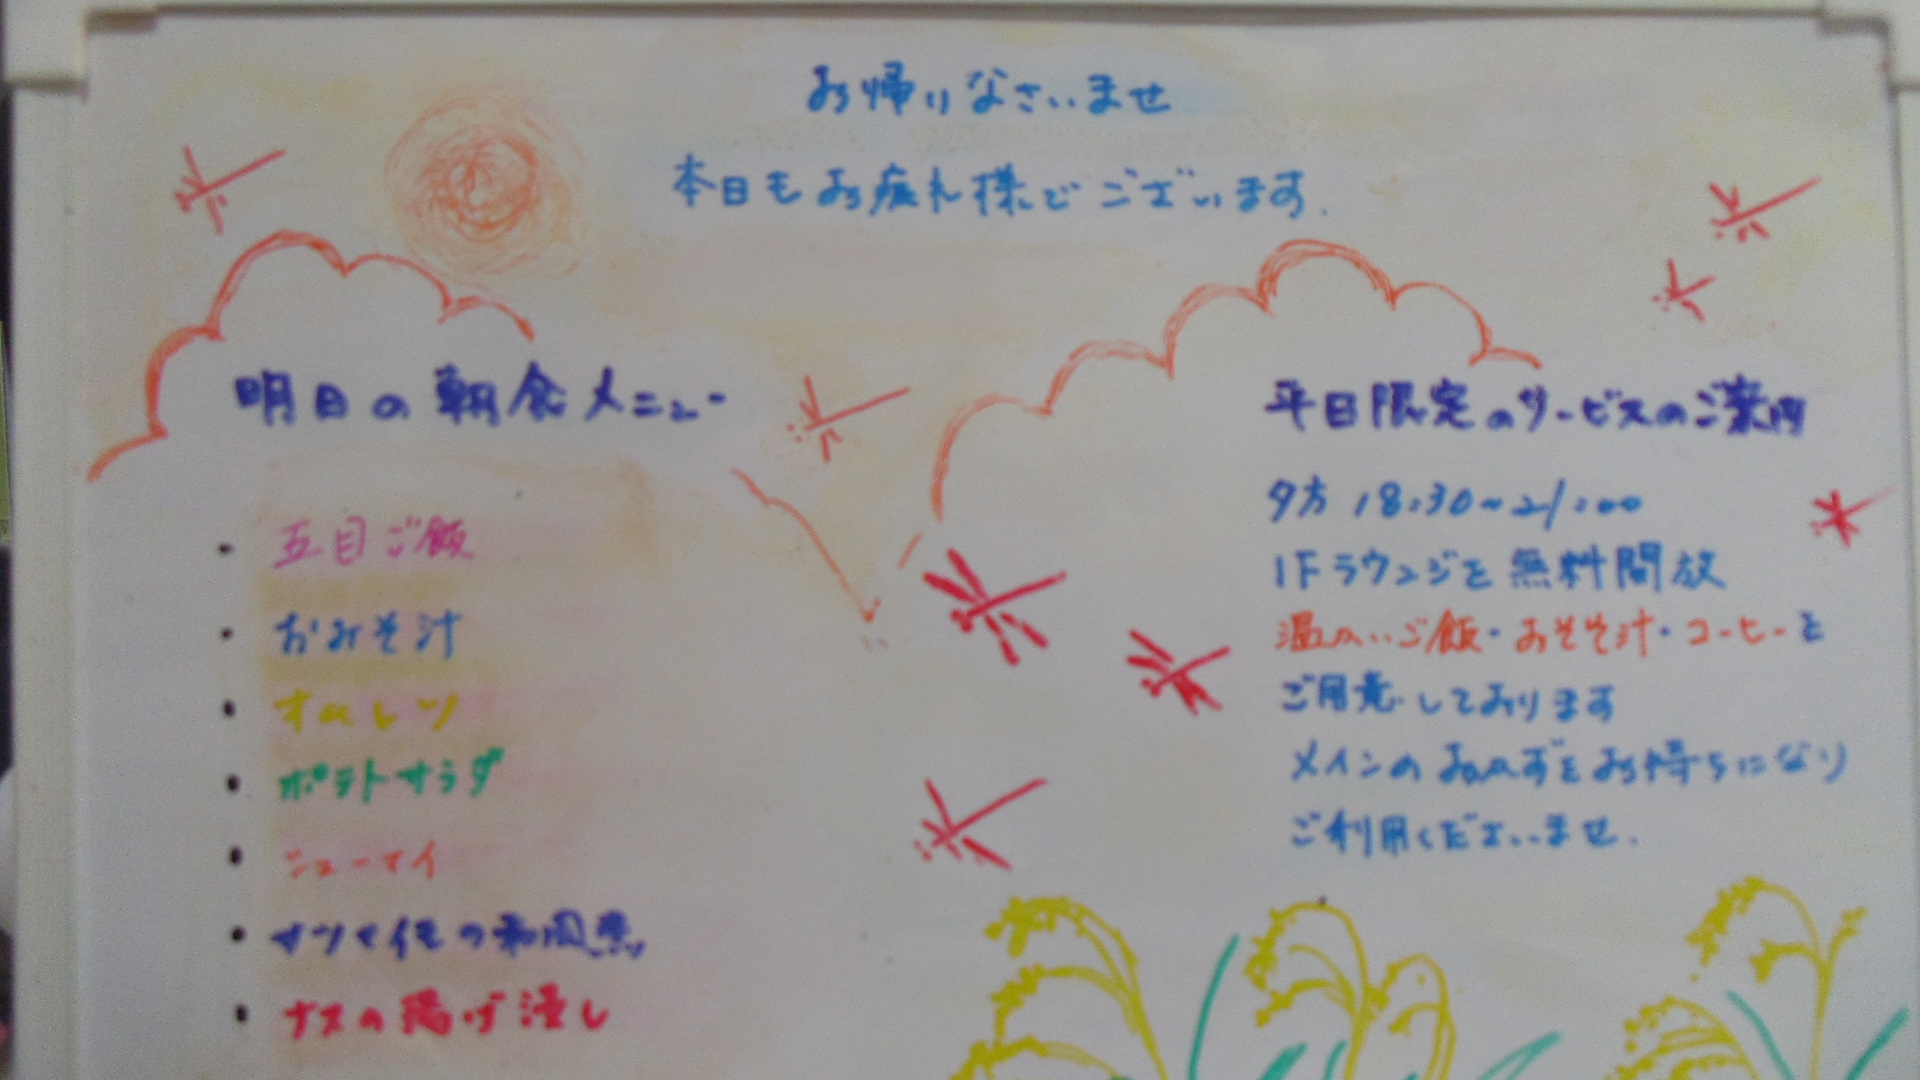 お帰りなさいませ
本日もお疲れ様でございます.
明日の朝食メニュー
・五目ご飯
・おみそ汁
・オムレツ
・ポテトサラダ
・シューマイ
・サツマイモの和風煮
・ナスの揚げ浸し
平日限定のサービスのご案内
夕方 18:30~21:00
1Fラウンジを無料開放
温かいご飯・おみそ汁・コーヒーを
ご用意しております
メインのおかずをお持ちになり
ご利用くださいませ.